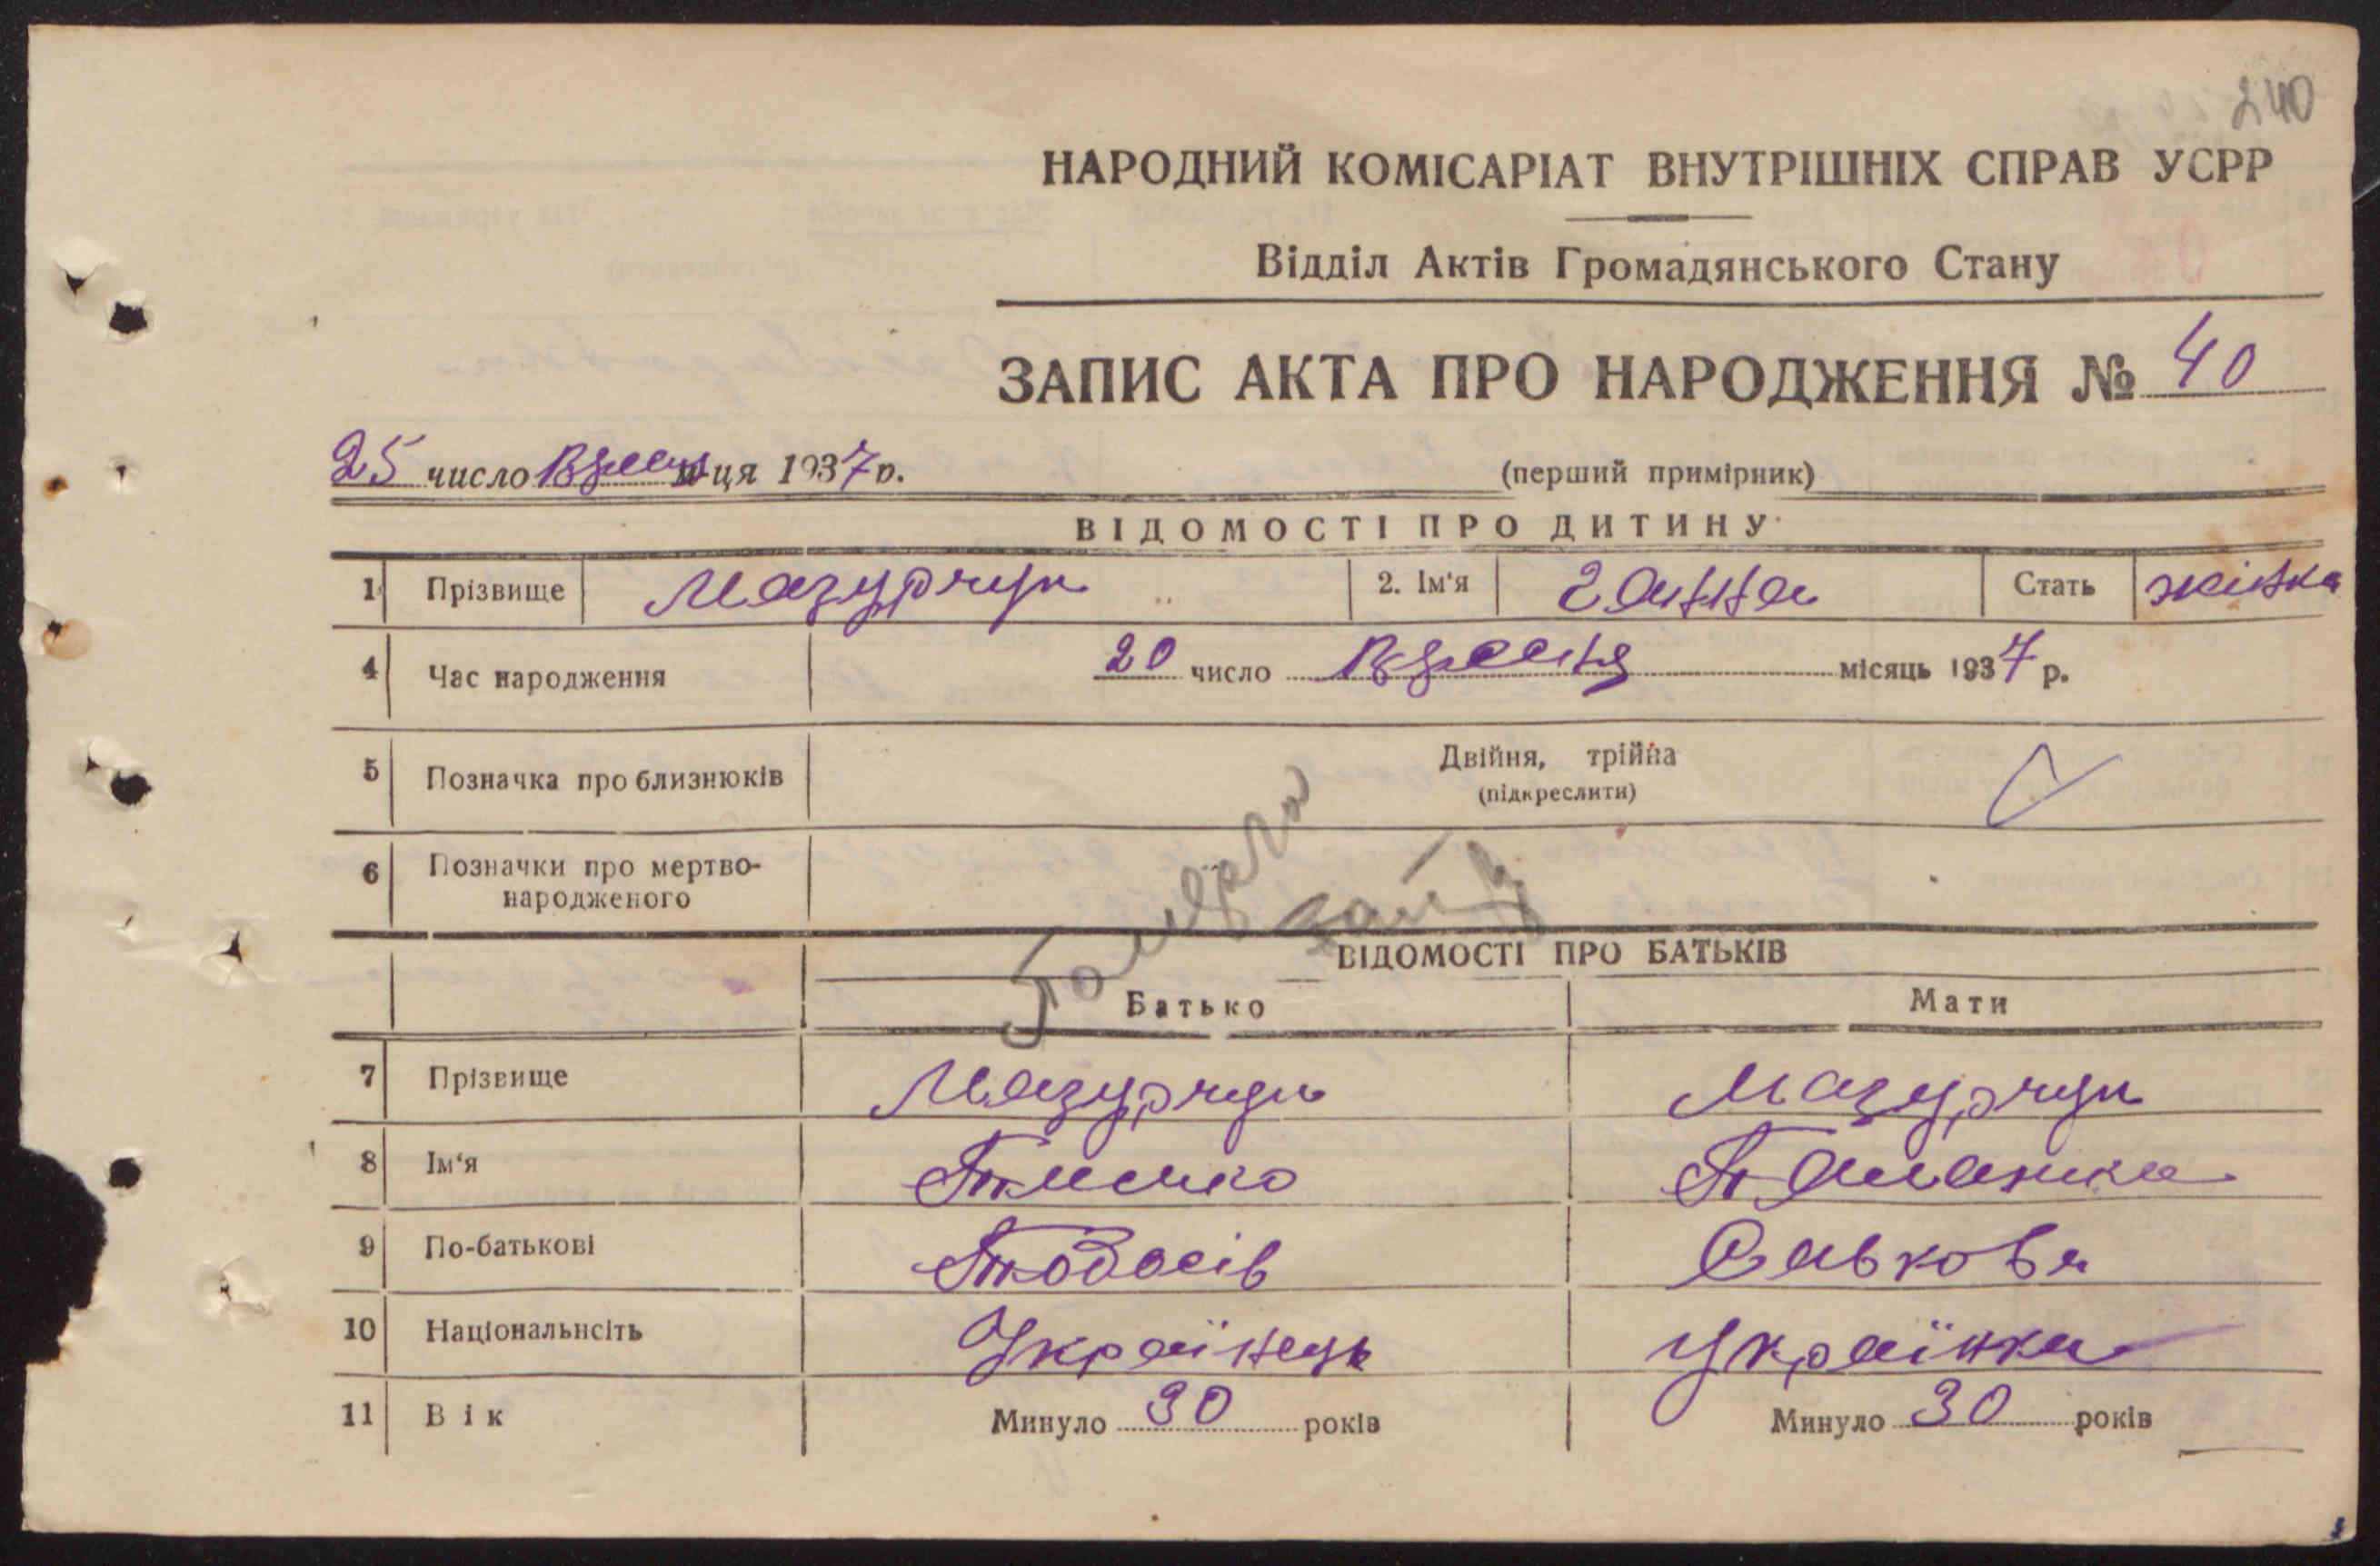 240
НАРОДНИЙ КОМІСАРІАТ ВНУТРІШНІХ СПРАВ УСРР
Відділ Актів Громадянського Стану
ЗАПИС АКТА ПРО НАРОДЖЕННЯ № 40
25 число Вресня м-ця 1937 р.
(перший примірник)
ВІДОМОСТІ ПРО ДИТИНУ
1 Прізвище Мазурчук 2. Ім'я Ганна Стать жінка
4 Час народження 20 число Вресня місяць 1937 р.
5 Позначка про близнюків Двійня, трійна
(підкреслити)
6 Позначки про мертво-
народженого
ВІДОМОСТІ ПРО БАТЬКІВ
Батько Мати
7 Прізвище Мазурчук Мазурчук
8 Ім'я Тимко
9 По-батькові Тодосів Савкова
10 Національнсіть Українець Українка
11 Вік Минуло 30 років Минуло 30 років